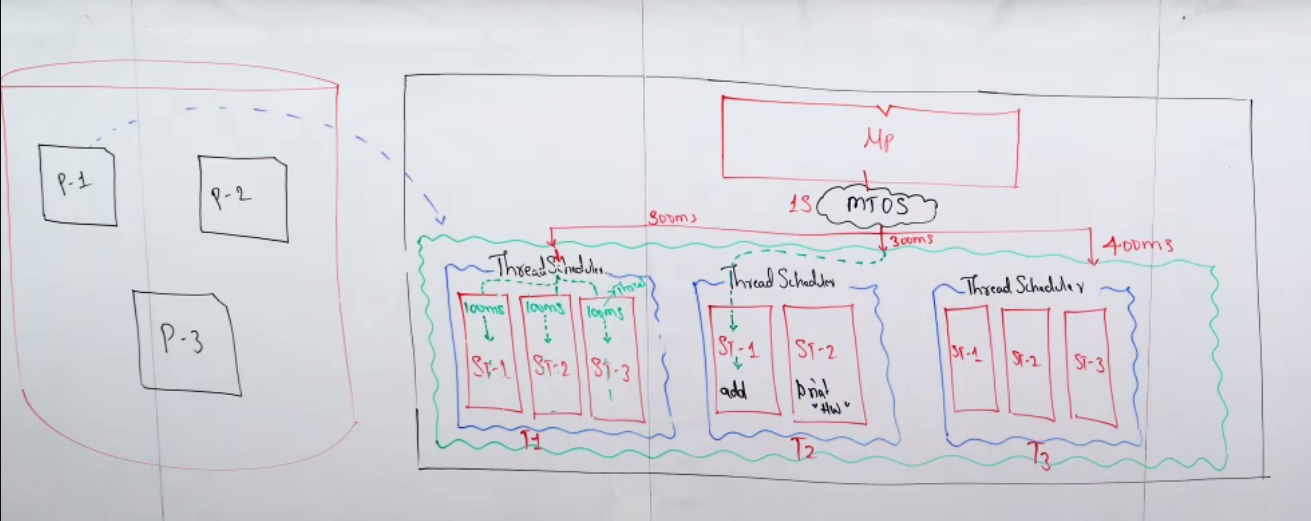 P-1
P-2
P-3
MP
1S
MTOS
300ms
300ms
400ms
Thread Scheduler
100ms
100ms
100ms
ST-1
ST-2
ST-3
T1
Thread Scheduler
ST-1
add
ST-2
print
"HW"
T2
Thread Scheduler
ST-1
ST-2
ST-3
T3